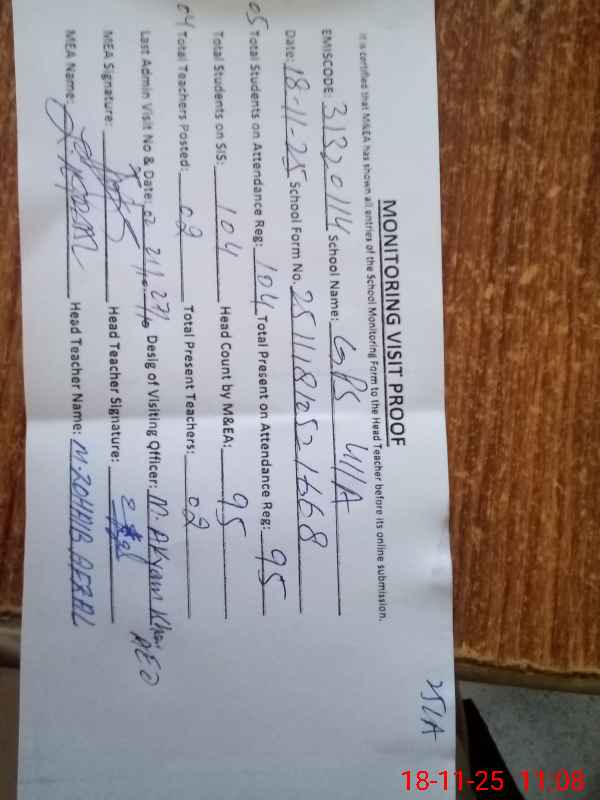 25/A
MONITORING VISIT PROOF
It is certified that M&EA has shown all entries of the School Monitoring Form to the Head Teacher before its online submission.
EMISCODE: 31320114 School Name: GPS 4/1A
Date: 18-11-25 School Form No. 25111810521668
05 Total Students on Attendance Reg: 104 Total Present on Attendance Reg: 95
Total Students on SIS: 104 Head Count by M&EA: 95
04 Total Teachers Posted: 02 Total Present Teachers: 02
Last Admin Visit No & Date: 02 Desig of Visiting Officer: M. AKram Khan AEO
MEA Signature: Head Teacher Signature:
MEA Name: Head Teacher Name: M. ZOHAIB AFZAL
18-11-25 11:08